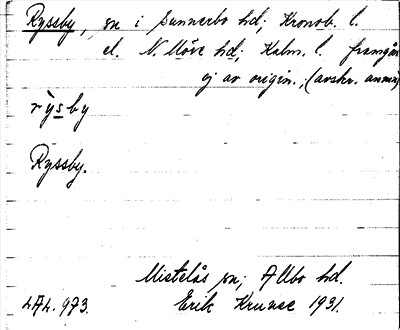 Ryssby, sn i Sunnerbo hd; Kronob. l.
el. N. Möre hd; Kalm. l. framgår
ej av origin.; (avskr. anm.)
rỳsby
Ryssby.
Mistelås sn; Allbo hd.
LAL. 973. Erik Krunse 1931.